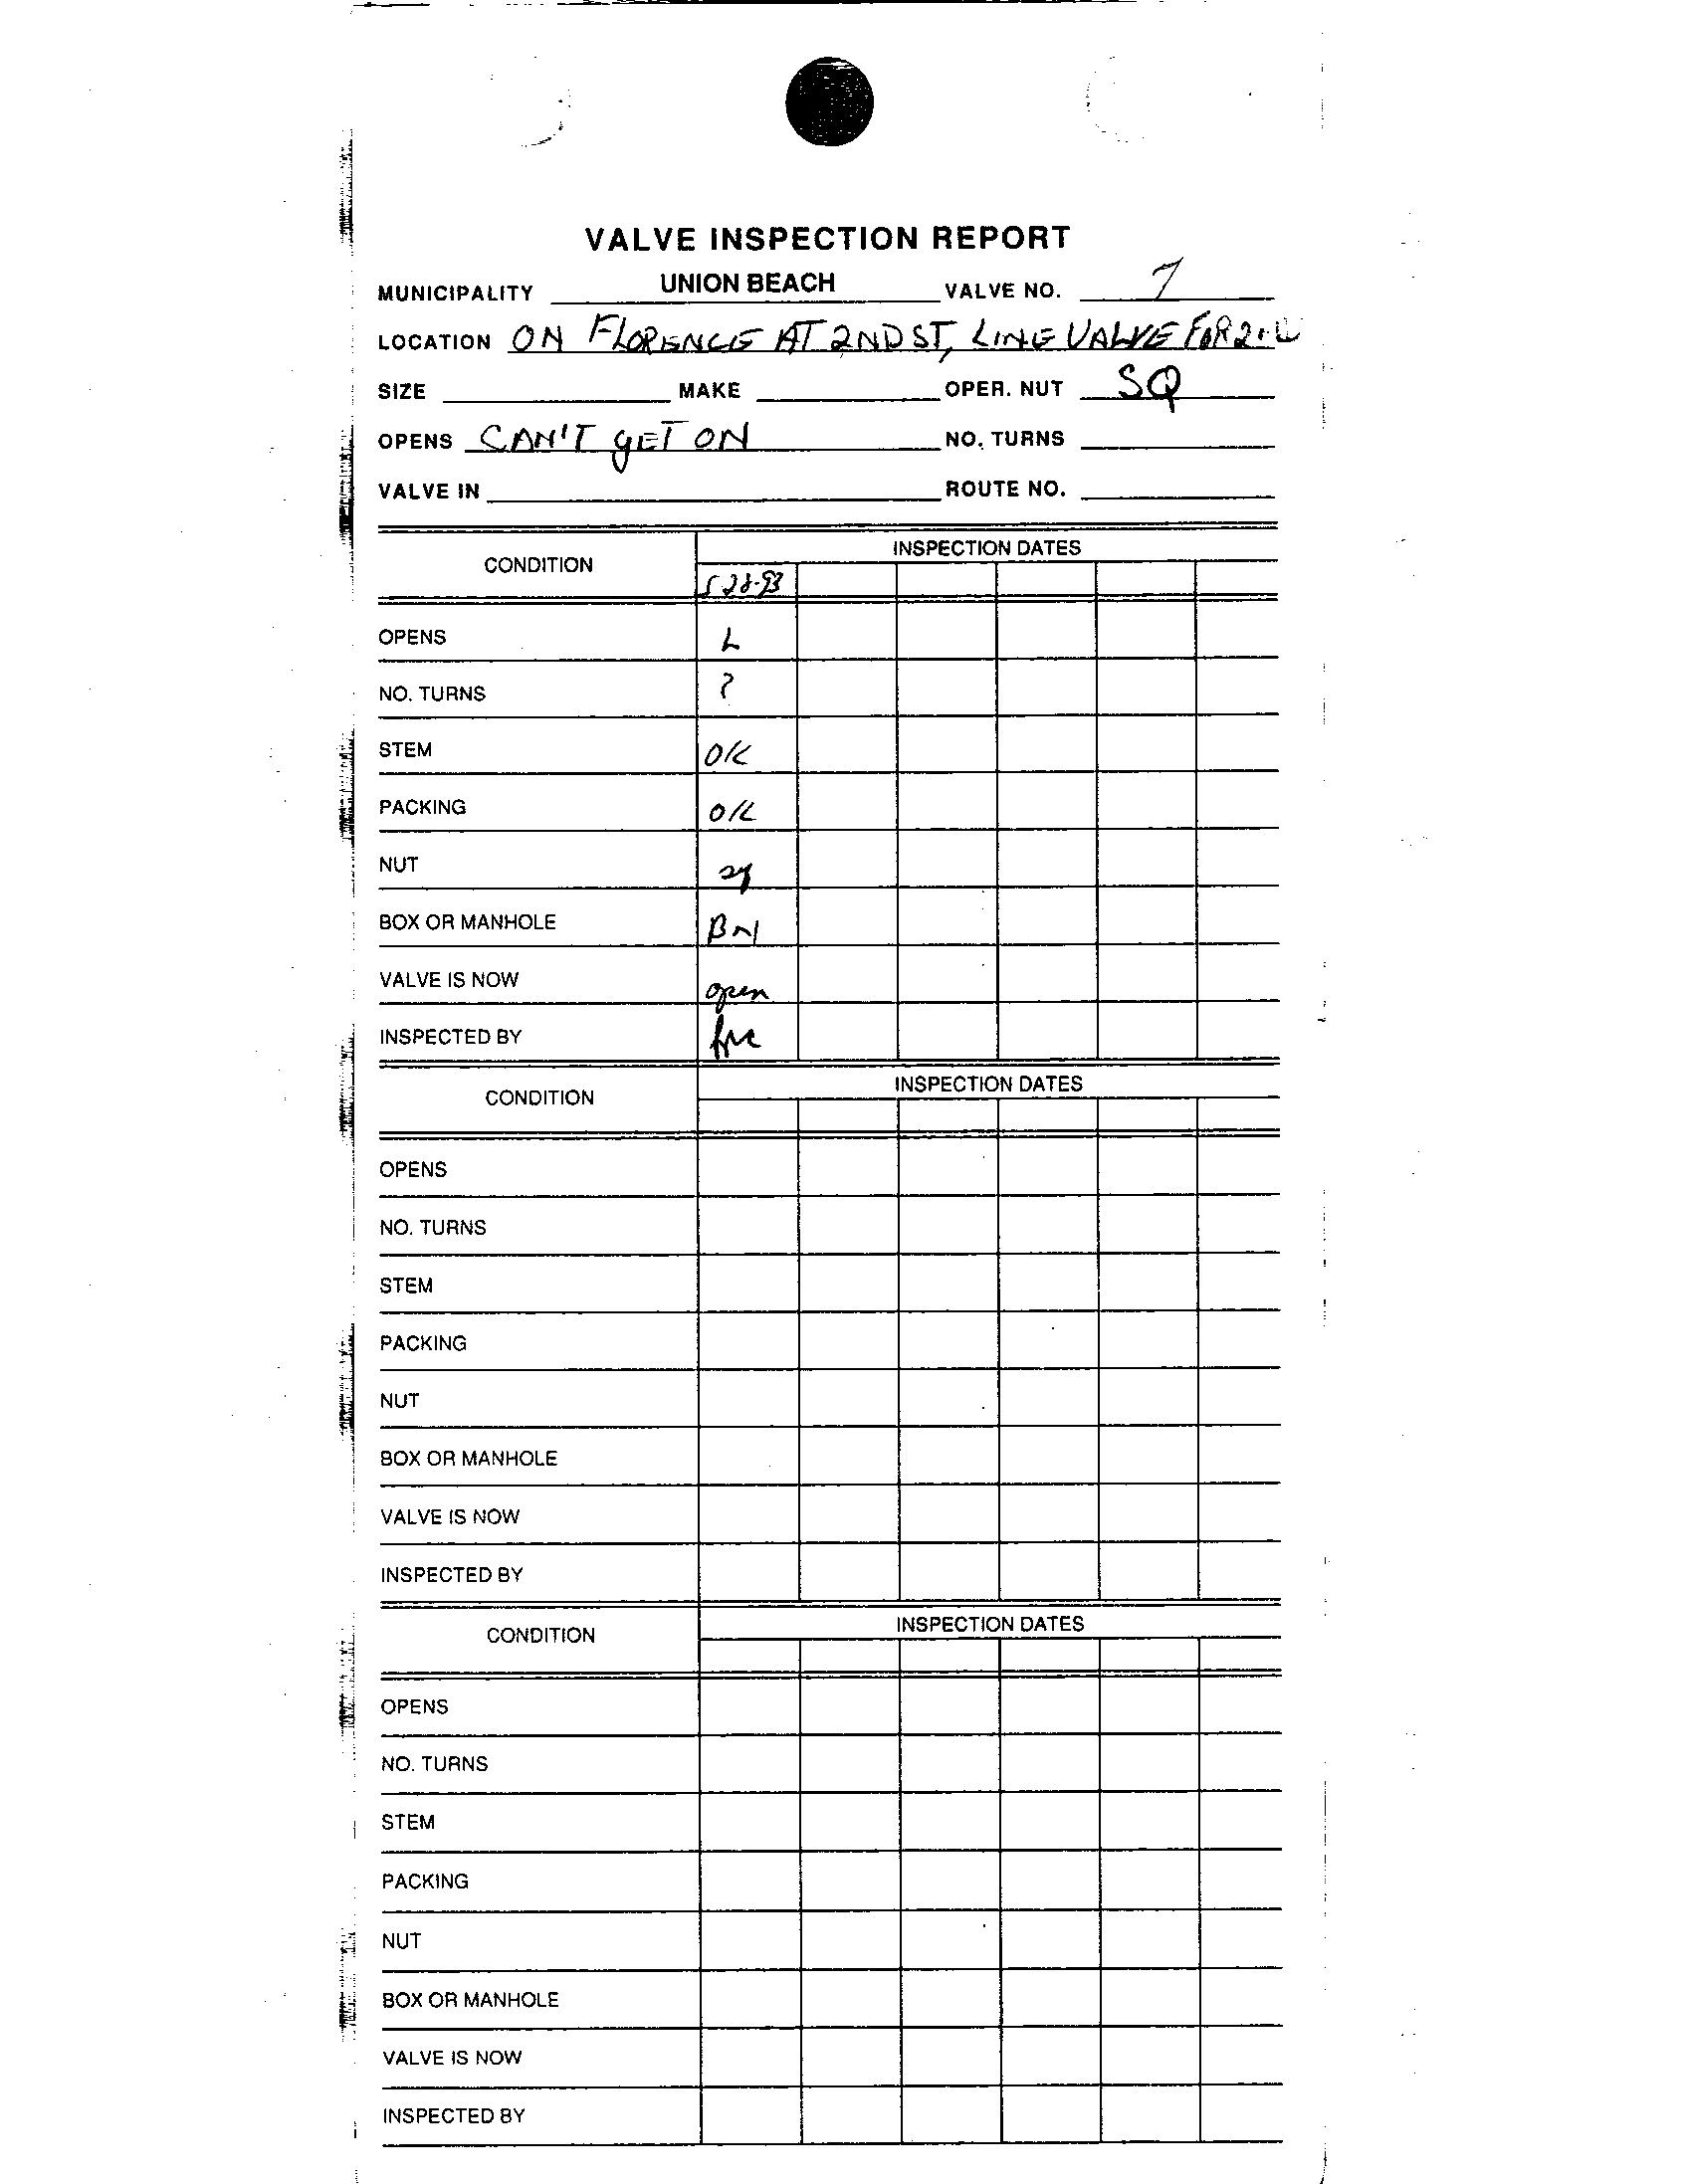 VALVE INSPECTION REPORT
MUNICIPALITY UNION BEACH VALVE NO. 7
LOCATION ON FLORENCE AT 2ND ST, LINE VALVE FOR
SIZE MAKE OPER. NUT SQ
OPENS CAN'T GET ON NO. TURNS
VALVE IN ROUTE NO.
CONDITION INSPECTION DATES
5-28-93
OPENS L
NO. TURNS ?
STEM OK
PACKING OK
NUT sq
BOX OR MANHOLE
VALVE IS NOW open
INSPECTED BY
CONDITION INSPECTION DATES
OPENS
NO. TURNS
STEM
PACKING
NUT
BOX OR MANHOLE
VALVE IS NOW
INSPECTED BY
CONDITION INSPECTION DATES
OPENS
NO. TURNS
STEM
PACKING
NUT
BOX OR MANHOLE
VALVE IS NOW
INSPECTED BY